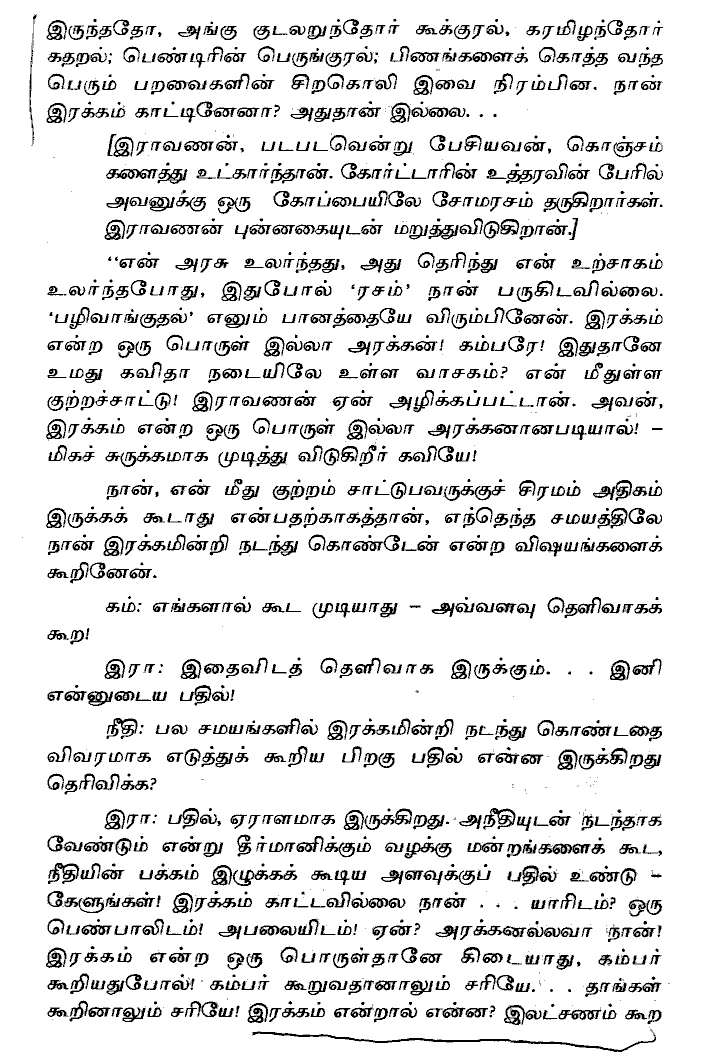 இருந்ததோ, அங்கு குடலறுந்தோர் கூக்குரல், கரமிழந்தோர்
கதறல்; பெண்டிரின் பெருங்குரல்; பிணங்களைக் கொத்த வந்த
பெரும் பறவைகளின் சிறகொலி இவை நிரம்பின. நான்
இரக்கம் காட்டினேனா? அதுதான் இல்லை. . .
[இராவணன், படபடவென்று பேசியவன், கொஞ்சம்
களைத்து உட்கார்ந்தான். கோர்ட்டாரின் உத்தரவின் பேரில்
அவனுக்கு ஒரு கோப்பையிலே சோமரசம் தருகிறார்கள்.
இராவணன் புன்னகையுடன் மறுத்துவிடுகிறான்.]
‘‘என் அரசு உலர்ந்தது, அது தெரிந்து என் உற்சாகம்
உலர்ந்தபோது, இதுபோல் ‘ரசம்’ நான் பருகிடவில்லை.
‘பழிவாங்குதல்’ எனும் பானத்தையே விரும்பினேன். இரக்கம்
என்ற ஒரு பொருள் இல்லா அரக்கன்! கம்பரே! இதுதானே
உமது கவிதா நடையிலே உள்ள வாசகம்? என் மீதுள்ள
குற்றச்சாட்டு! இராவணன் ஏன் அழிக்கப்பட்டான். அவன்,
இரக்கம் என்ற ஒரு பொருள் இல்லா அரக்கனானபடியால்! –
மிகச் சுருக்கமாக முடித்து விடுகிறீர் கவியே!
நான், என் மீது குற்றம் சாட்டுபவருக்குச் சிரமம் அதிகம்
இருக்கக் கூடாது என்பதற்காகத்தான், எந்தெந்த சமயத்திலே
நான் இரக்கமின்றி நடந்து கொண்டேன் என்ற விஷயங்களைக்
கூறினேன்.
கம்: எங்களால் கூட முடியாது – அவ்வளவு தெளிவாகக்
கூற!
இரா: இதைவிடத் தெளிவாக இருக்கும். . . இனி
என்னுடைய பதில்!
நீதி: பல சமயங்களில் இரக்கமின்றி நடந்து கொண்டதை
விவரமாக எடுத்துக் கூறிய பிறகு பதில் என்ன இருக்கிறது
தெரிவிக்க?
இரா: பதில், ஏராளமாக இருக்கிறது. அநீதியுடன் நடந்தாக
வேண்டும் என்று தீர்மானிக்கும் வழக்கு மன்றங்களைக் கூட,
நீதியின் பக்கம் இழுக்கக் கூடிய அளவுக்குப் பதில் உண்டு –
கேளுங்கள்! இரக்கம் காட்டவில்லை நான் . . . யாரிடம்? ஒரு
பெண்பாலிடம்! அபலையிடம்! ஏன்? அரக்கனல்லவா நான்!
இரக்கம் என்ற ஒரு பொருள்தானே கிடையாது, கம்பர்
கூறியதுபோல்! கம்பர் கூறுவதானாலும் சரியே. . . தாங்கள்
கூறினாலும் சரியே! இரக்கம் என்றால் என்ன? இலட்சணம் கூற